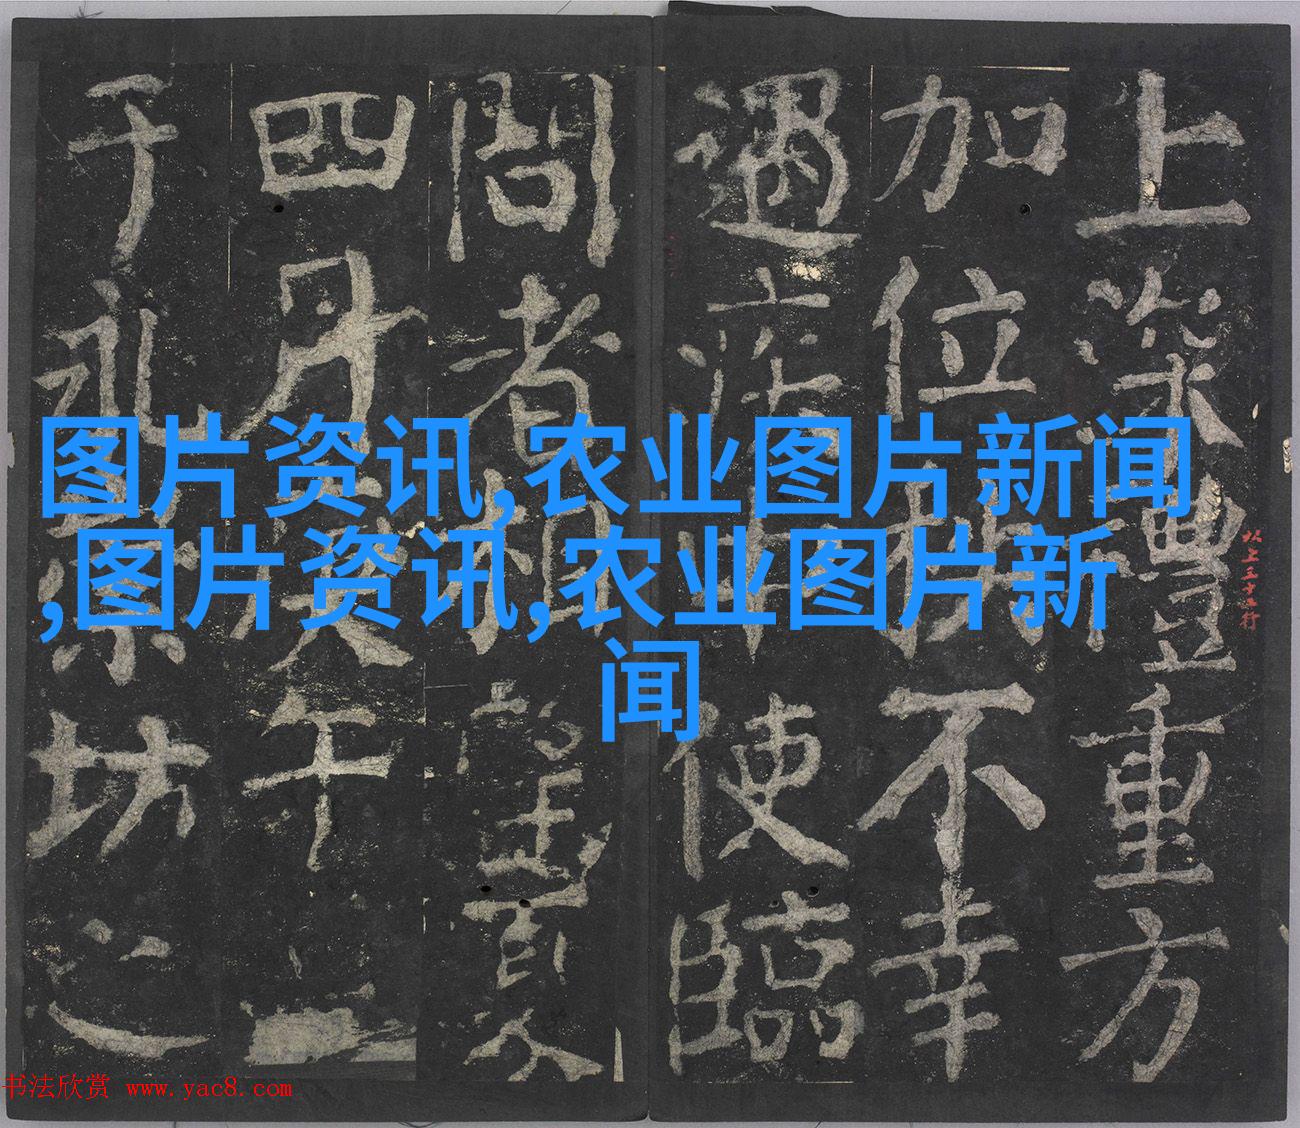 上深禮重方
加位秩不幸
遇疾中使臨
問者相望夏
四月戊午
于永崇坊之
图片资讯,农业图片新闻
,图片资讯,农业图片新
闻
以上五十行
书法欣赏 www.yac8.com